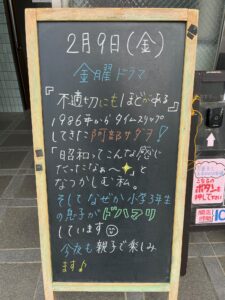 2月9日(金)
金曜ドラマ
『不適切にも1ほどがある』
1986年からタイムスリップ
してきた阿部サダヲ！
「昭和ってこんな感じ
だったなぁ〜と
なつかしむ私。
そしてなぜか小学3年生
の息子がドハマり
しています
今夜も親子で楽しみ
ます♪
こちらの
ボタンを
押して下さい